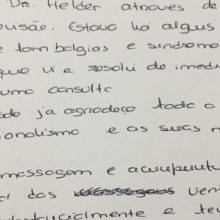 Dr. Helder através de
visão. Estava há algus
e lombalgias e sindrome
que vi e resolvi de imedi
uma consulta
de já agradeço todo o
onalismo e as suas m
massagem e acupuntu
er das vento
e te